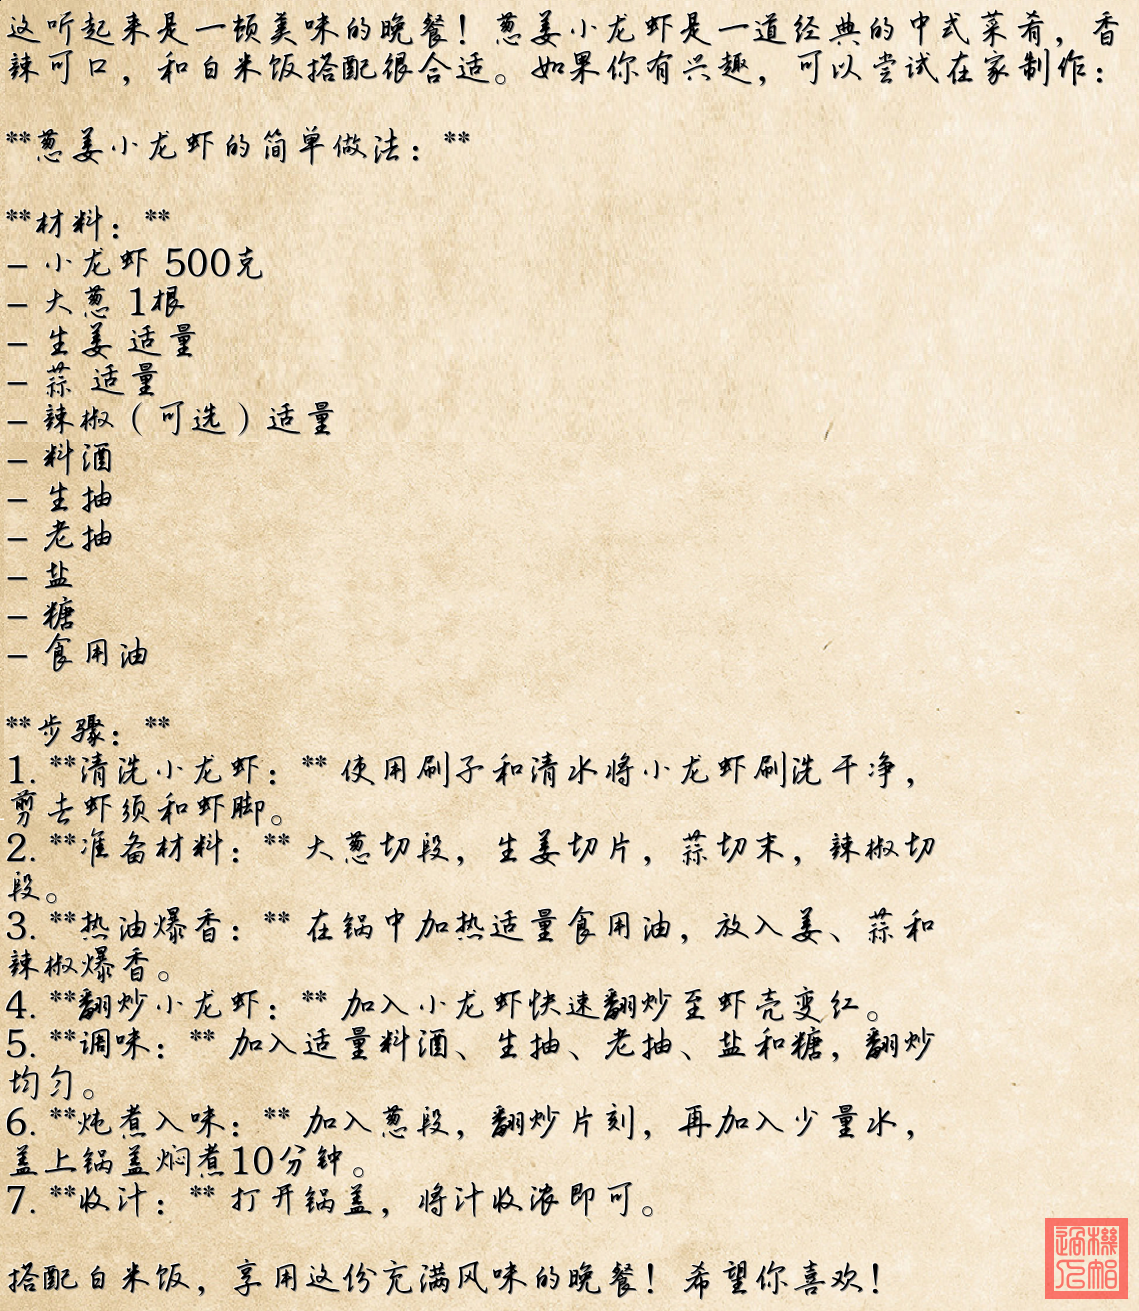 这听起来是一顿美味的晚餐！葱姜小龙虾是一道经典的中式菜肴，香
辣可口，和白米饭搭配很合适。如果你有兴趣，可以尝试在家制作：
**葱姜小龙虾的简单做法：**
**材料：**
- 小龙虾 500克
- 大葱 1根
- 生姜 适量
- 蒜 适量
- 辣椒（可选）适量
- 料酒
- 生抽
- 老抽
- 盐
- 糖
- 食用油
**步骤：**
1. **清洗小龙虾：** 使用刷子和清水将小龙虾刷洗干净，
剪去虾须和虾脚。
2. **准备材料：** 大葱切段，生姜切片，蒜切末，辣椒切
段。
3. **热油爆香：** 在锅中加热适量食用油，放入姜、蒜和
辣椒爆香。
4. **翻炒小龙虾：** 加入小龙虾快速翻炒至虾壳变红。
5. **调味：** 加入适量料酒、生抽、老抽、盐和糖，翻炒
均匀。
6. **炖煮入味：** 加入葱段，翻炒片刻，再加入少量水，
盖上锅盖焖煮10分钟。
7. **收汁：** 打开锅盖，将汁收浓即可。
搭配白米饭，享用这份充满风味的晚餐！希望你喜欢！